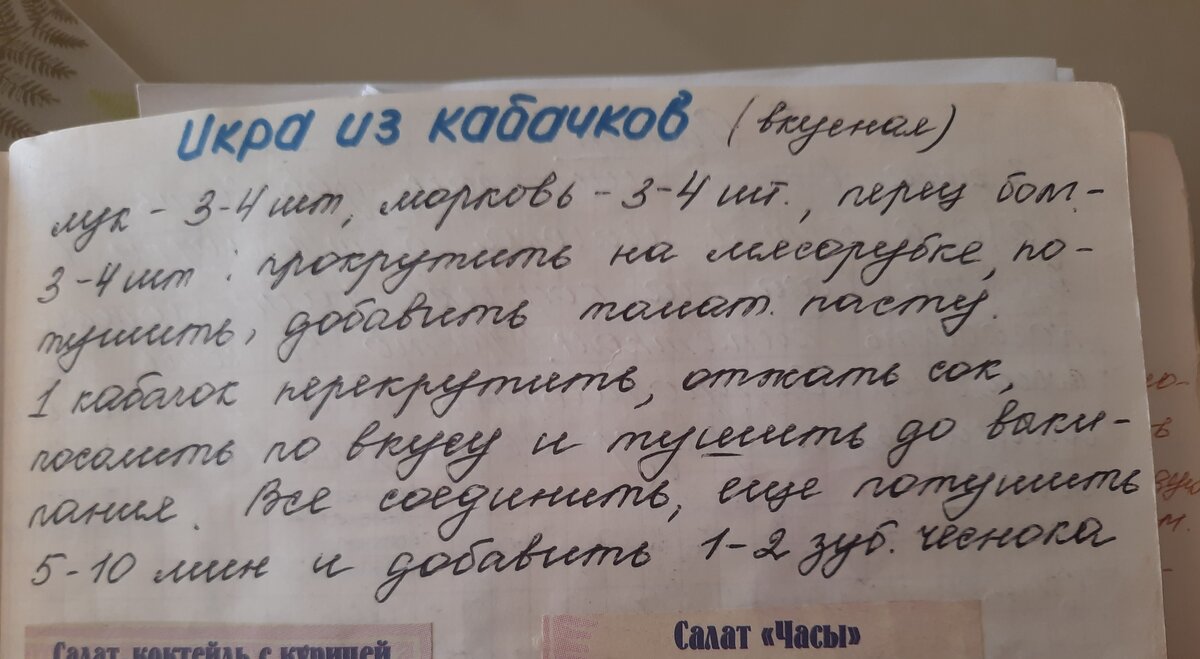 Икра из кабачков (вкусная)
лук - 3-4 шт, морковь - 3-4 шт., перец болг.-
3-4 шт : прокрутить на мясорубке, по-
тушить, добавить томат. пасту.
1 кабачок перекрутить, отжать сок,
посолить по вкусу и тушить до выки-
пания. Все соединить, еще потушить
5-10 мин и добавить 1-2 зуб. чеснока
Салат коктейль с курицей
Салат «Часы»